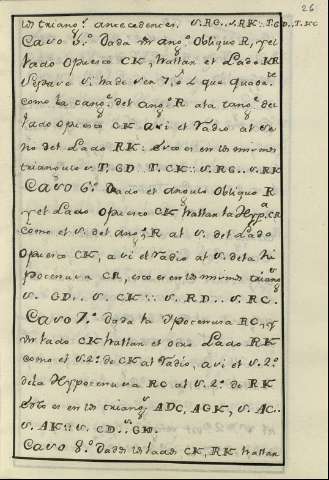 26
los triangs. antecedences. S. RG.. S. RK:: T. GD.. T. KC
Cavo 5.º Dada un angº. Obliquo R, y el
lado Opuesto CK, hallar el Lado KR
como la tangte. del Angº. R a la tangte. del
lado opuesto CK asi el Radio al se
no del Lado RK: Esto es en los mismos
triangulos T. GD.. T. CK:: S. RG.. S. RK
Cavo 6.º Dado el angulo Obliquo R
y el Lado Opuesto CK hallar la Hypa. CR
como el S. del angº. R al S. del Lado
Opuesto CK, asi el Radio al S. de la hi
pocenusa CR, esto es en los mismos triangs
S. GD.. S. CK:: S. RD.. S. RC.
Cavo 7.º dada la Ypocenusa RC, y
un lado CK hallar el otro Lado RK
como el S. 2.º de CK al Radio, asi el S. 2.º
de la Hypocenusa RC al S. 2.º de RK
Esto es en los triangs. ADC, AGK, S. AC..
S. AK:: S. CD.. S. GK.
Cavo 8.º Dados los lados CK, RK hallar